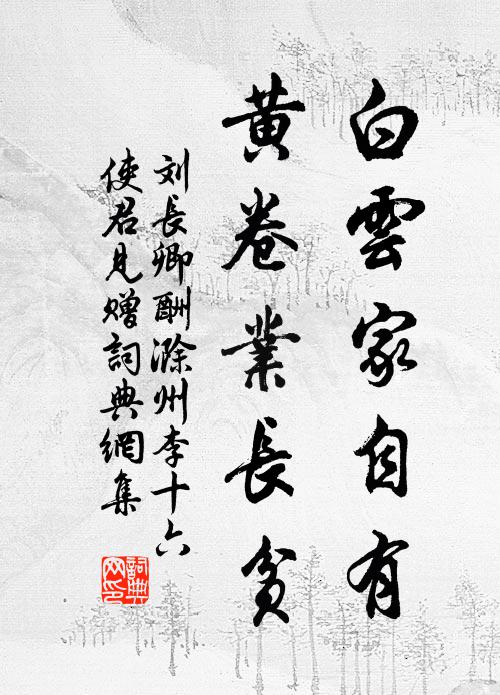 白雲家自有
黄卷業長貧
刘長卿酬滁州李十六
使君見贈詞典網集
詞典
网印